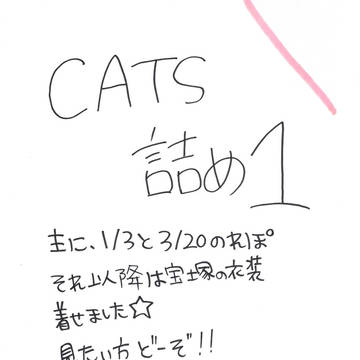 CATS
詰め1
主に、1/3と3/20のれぽ
それ以降は宝塚の衣装
着せました☆
見たい方どーぞ!!